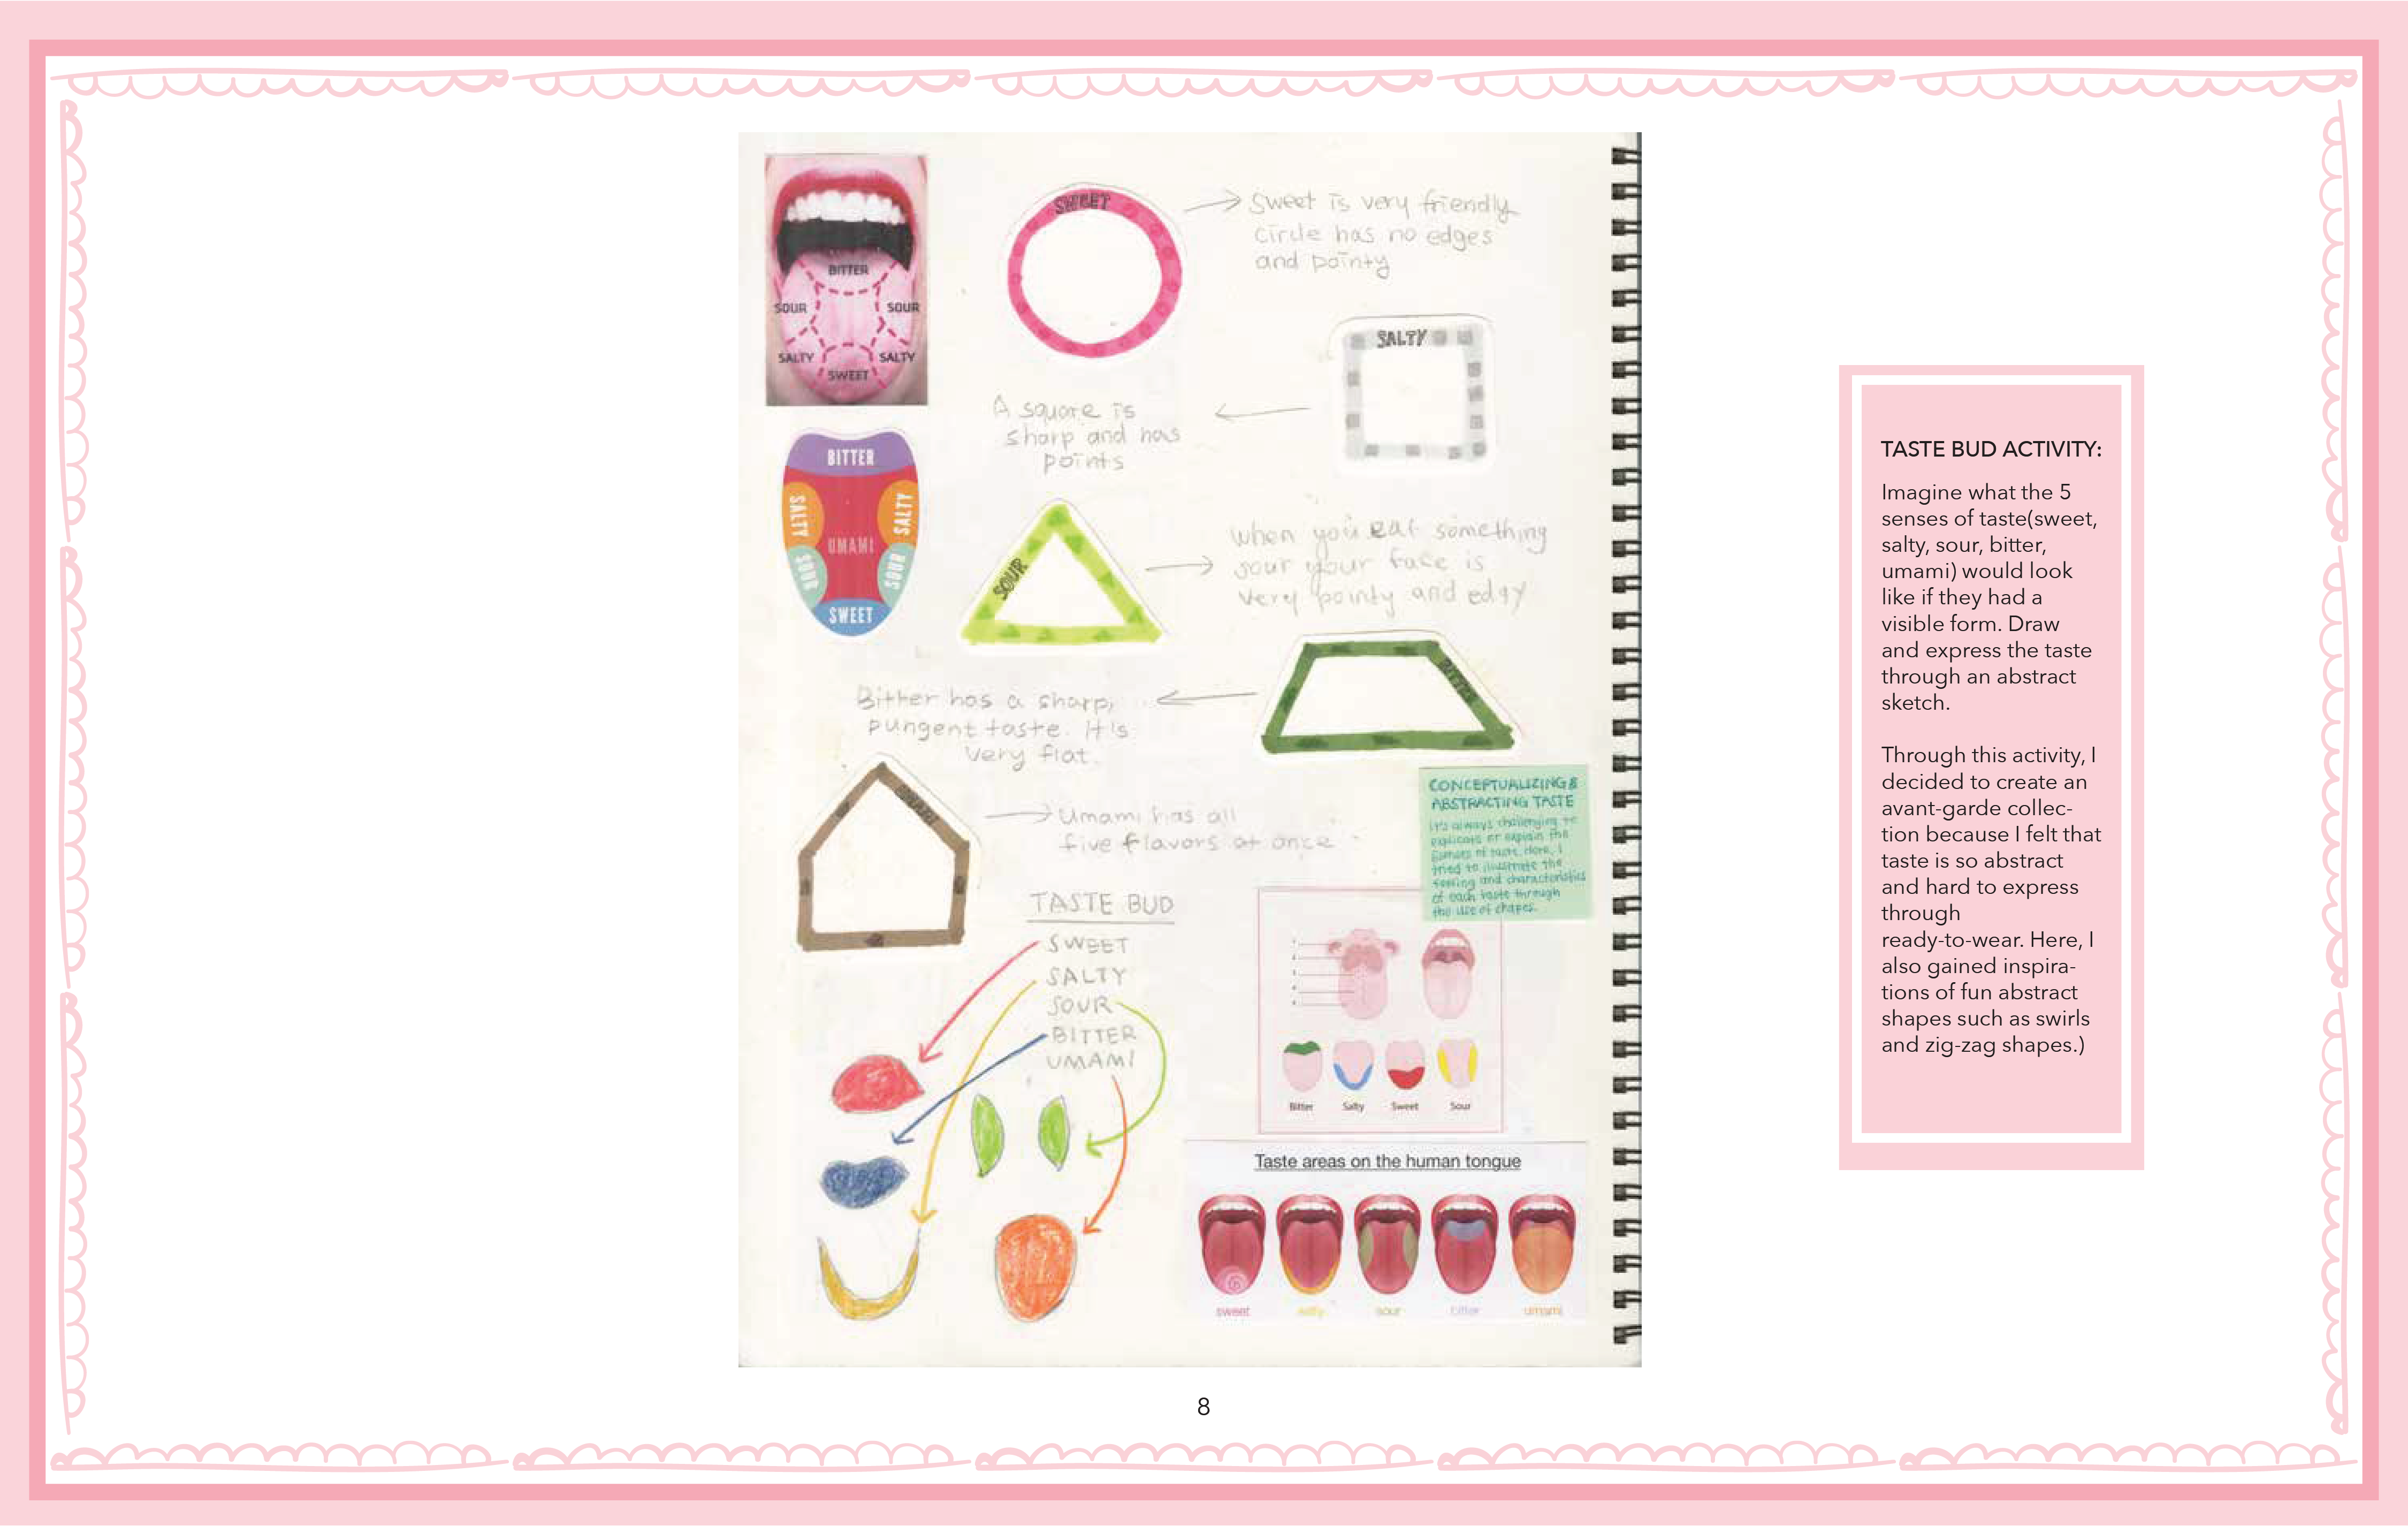 BITTER
SOUR SOUR
SALTY SALTY
SWEET
SWEET
Sweet is very friendly
circle has no edges
and pointy
SALTY
A square is
sharp and has
points
BITTER
SALTY SALTY
UMAMI
SOUR SOUR
SWEET
SOUR
When you eat something
sour your face is
very pointy and edgy
BITTER
Bitter has a sharp,
pungent taste. It's
very flat.
UMAMI
Umami has all
five flavors at once
CONCEPTUALIZING &
ABSTRACTING TASTE
It's always challenging to
explicate or explain the
senses of taste. Here, I
tried to illustrate the
feeling and characteristics
of each taste through
the use of shapes.
TASTE BUD
SWEET
SALTY
SOUR
BITTER
UMAMI
Bitter Salty Sweet Sour
Taste areas on the human tongue
sweet salty sour bitter umami
TASTE BUD ACTIVITY:
Imagine what the 5
senses of taste(sweet,
salty, sour, bitter,
umami) would look
like if they had a
visible form. Draw
and express the taste
through an abstract
sketch.
Through this activity, I
decided to create an
avant-garde collec-
tion because I felt that
taste is so abstract
and hard to express
through
ready-to-wear. Here, I
also gained inspira-
tions of fun abstract
shapes such as swirls
and zig-zag shapes.)
8